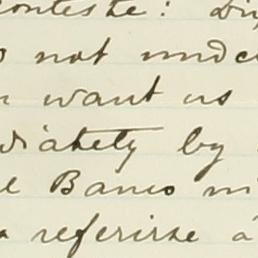 conteste: Di
not unde
want us
diately by
el Banco mi
referirse á